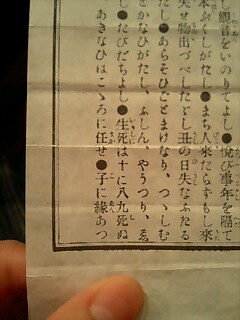 し觀音をいのりてよし●悦び事年を隔て
本ぷくしがたし●まち人來たらずもし來
失せ物出づべしたゞし丑の日失なふたる
だし●あらそひごとまけなり、つゝしむ
とかなひがたし、ふしん、やうつり、ゑ
し●たびだちよし●生死は十に八九死ぬ
あきなひはこゝろに任せ●子に緣あつ